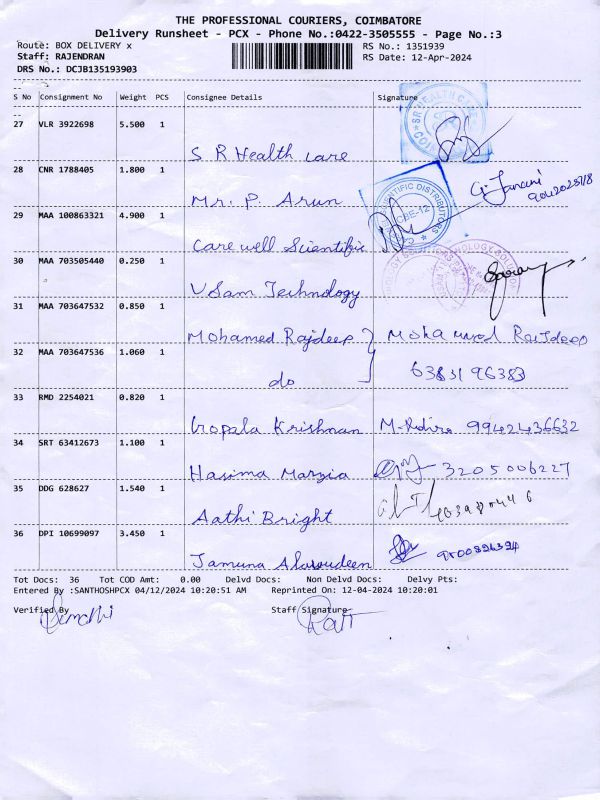 THE PROFESSIONAL COURIERS, COIMBATORE
Delivery Runsheet - PCX - Phone No.:0422-3505555 - Page No.:3
Route: BOX DELIVERY x
RS No.: 1351939
Staff: RAJENDRAN
RS Date: 12-Apr-2024
DRS No.: DCJB135193903
S No Consignment No Weight PCS Consignee Details Signature
27 VLR 3922698 5.500 1
S R Health care
28 CNR 1788405 1.800 1
Mr. P. Arun G. Janani
29 MAA 100863321 4.900 1
Care well Scientific
30 MAA 703505440 0.250 1
V Sam Technology
31 MAA 703647532 0.850 1
Mohamed Rajdeep Mohamed Rajdeep
32 MAA 703647536 1.060 1
do 6383196383
33 RMD 2254021 0.820 1
Gopala Krishnan 9942436632
34 SRT 63412673 1.100 1
Hasima Marzia 3205006227
35 DDG 628627 1.540 1
Aathi Bright
36 DPI 10699097 3.450 1
Jamuna Alavudeen
Tot Docs: 36 Tot COD Amt: 0.00 Delvd Docs: Non Delvd Docs: Delvy Pts:
Entered By :SANTHOSHPCX 04/12/2024 10:20:51 AM Reprinted On: 12-04-2024 10:20:01
Verified By Staff Signature